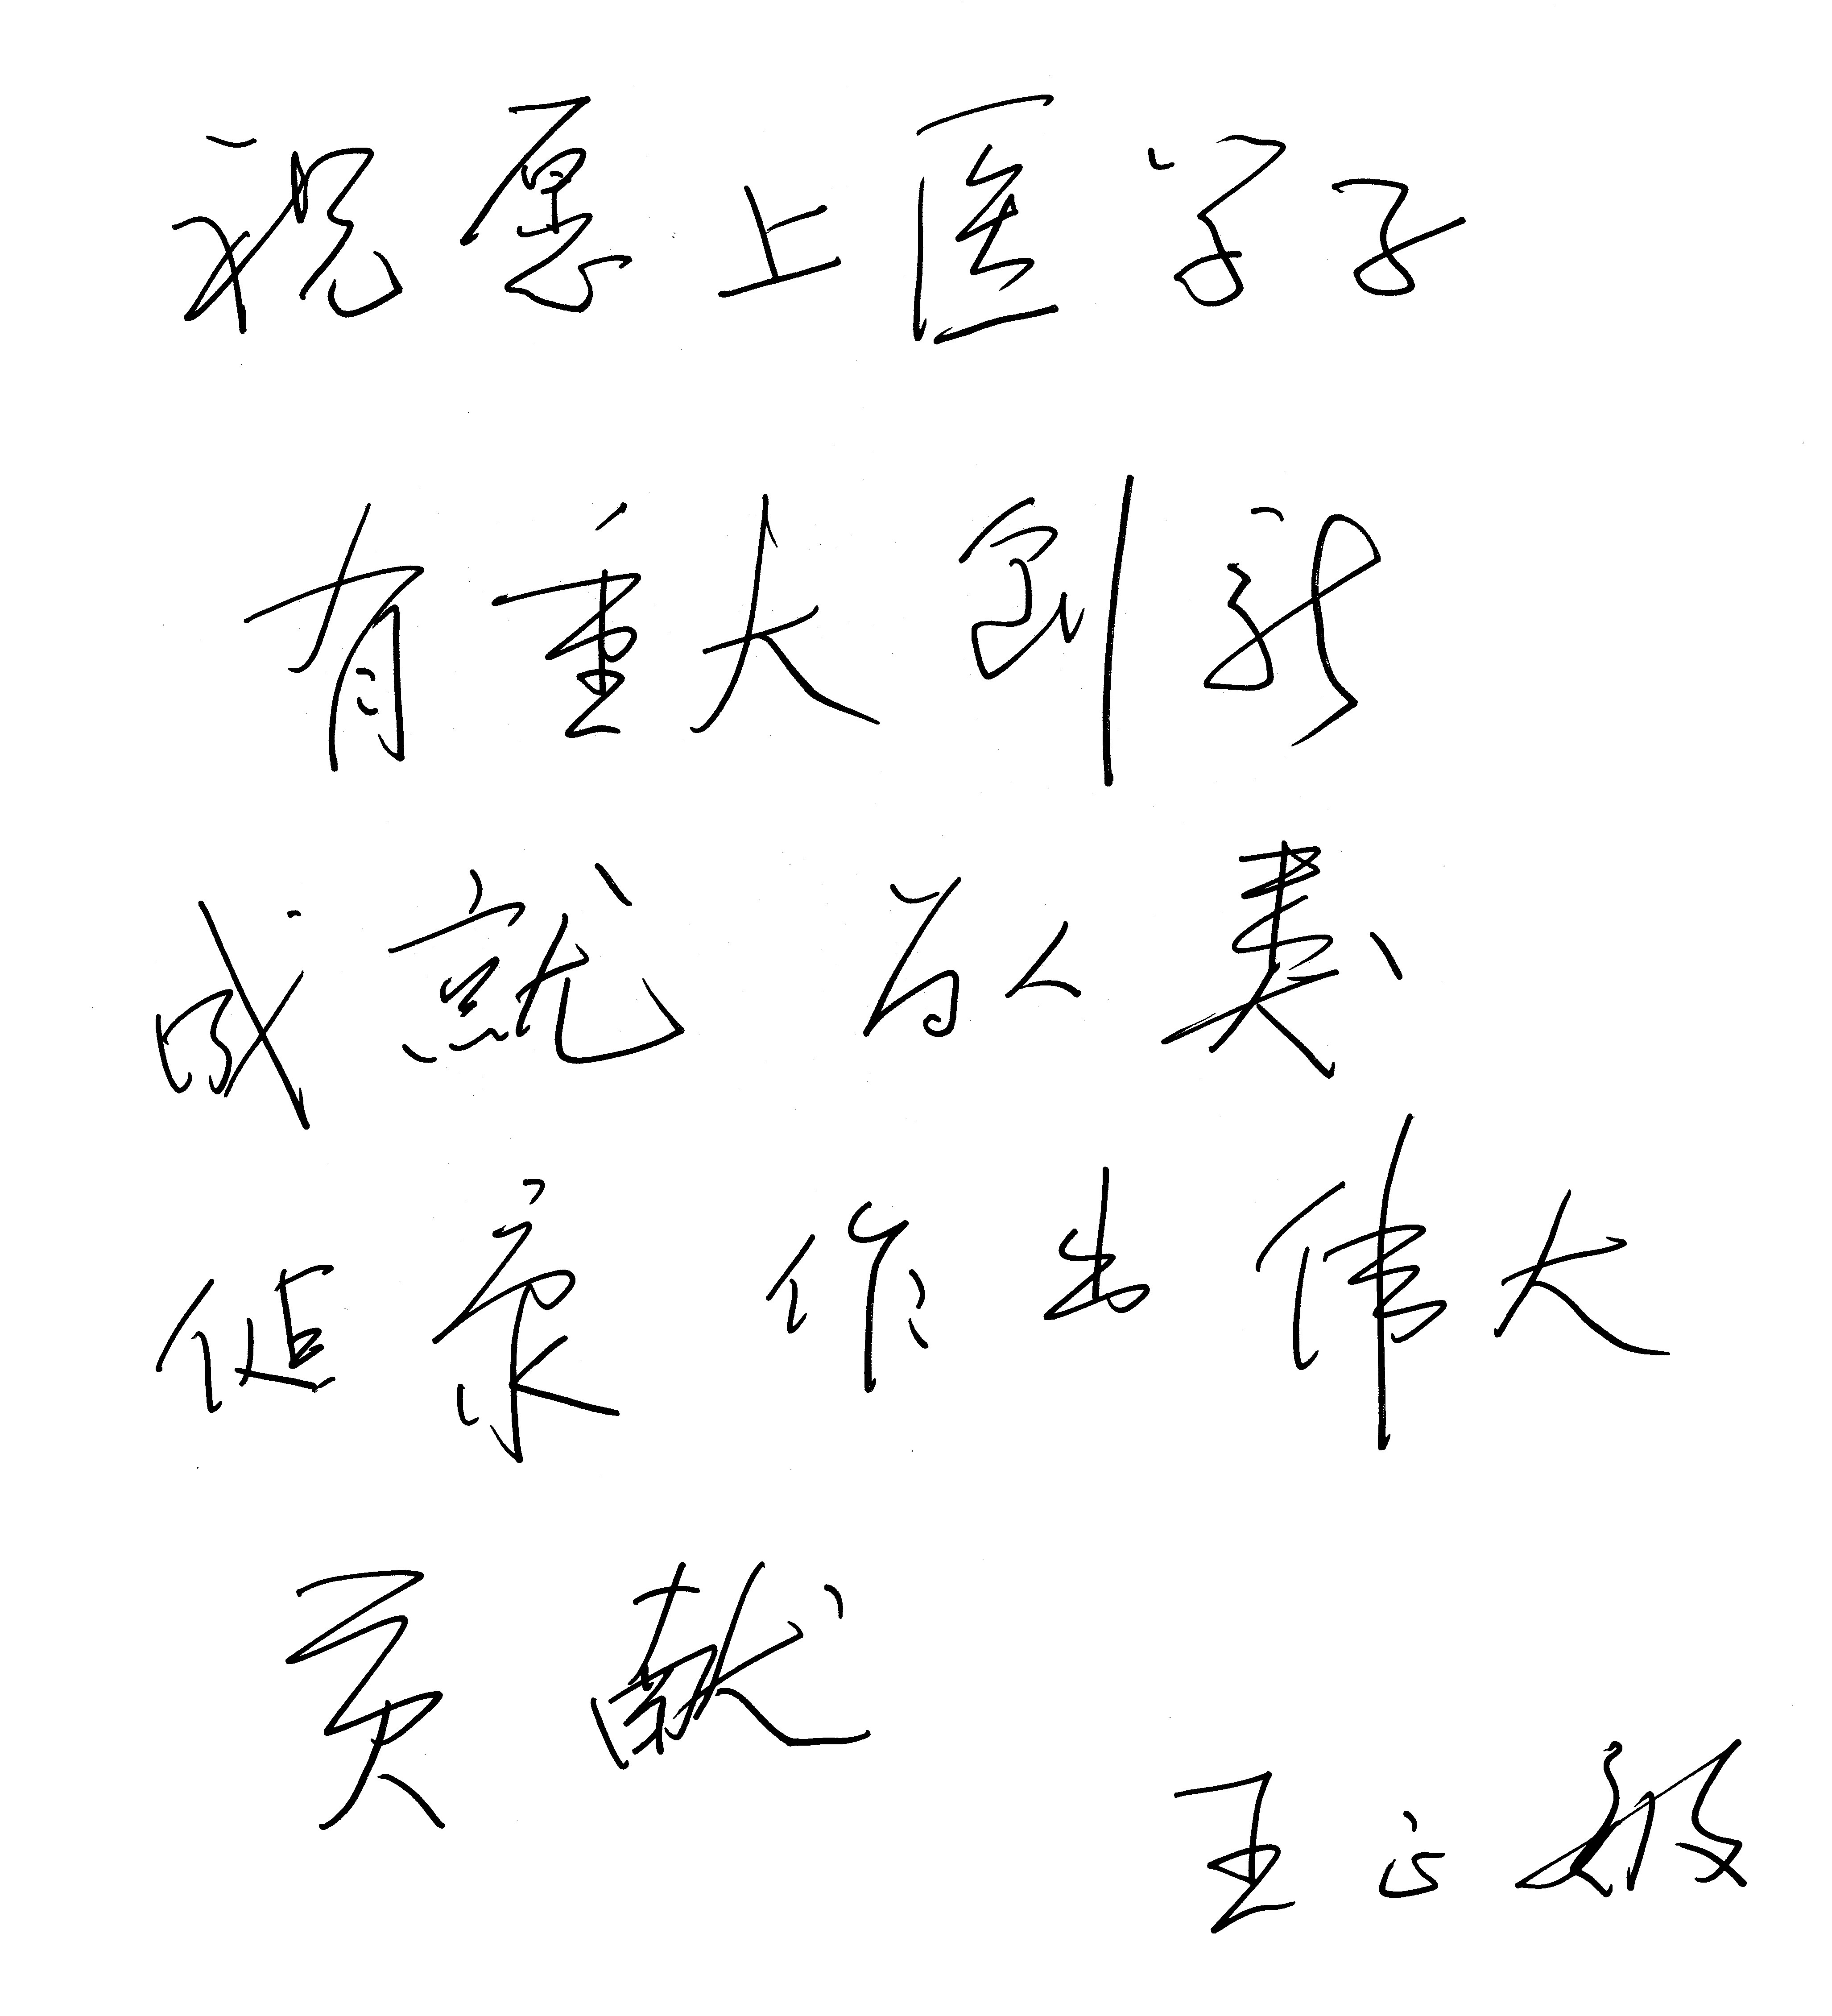 祝愿上医学子
有重大创新
成就 为人类
健康 作出伟大
贡献
王